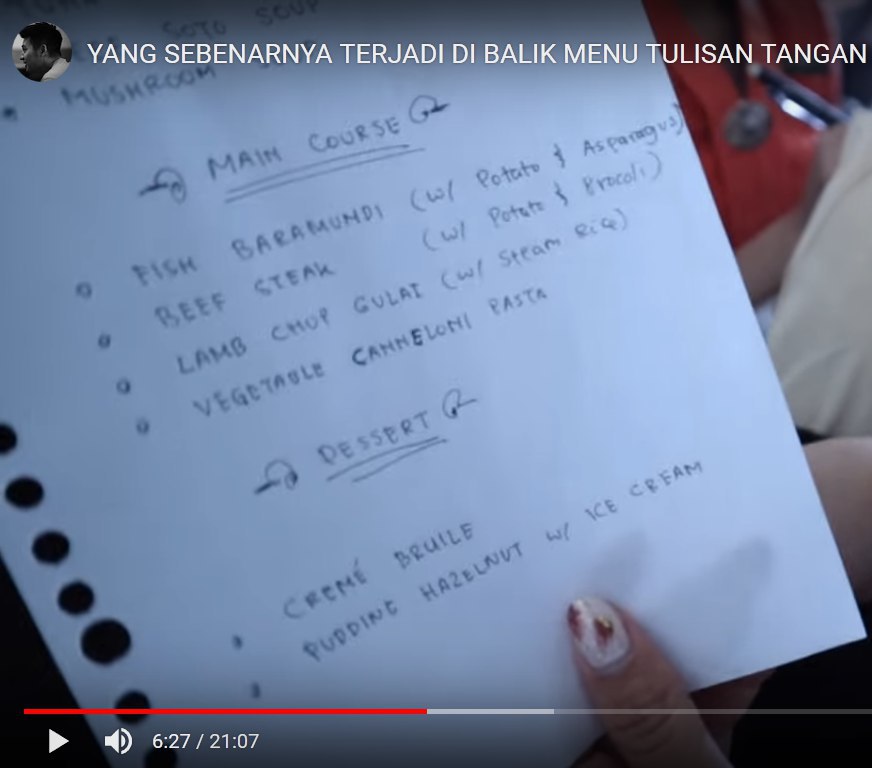 YANG SEBENARNYA TERJADI DI BALIK MENU TULISAN TANGAN
SOTO SOUP
MUSHROOM
MAIN COURSE
FISH BARAMUNDI (w/ Potato & Asparagus)
BEEF STEAK (w/ Potato & Brocoli)
LAMB CHOP GULAI (w/ Steam Rice)
VEGETABLE CANNELONI PASTA
DESSERT
CREMÉ BRUILE
PUDDING HAZELNUT w/ ICE CREAM
6:27 / 21:07